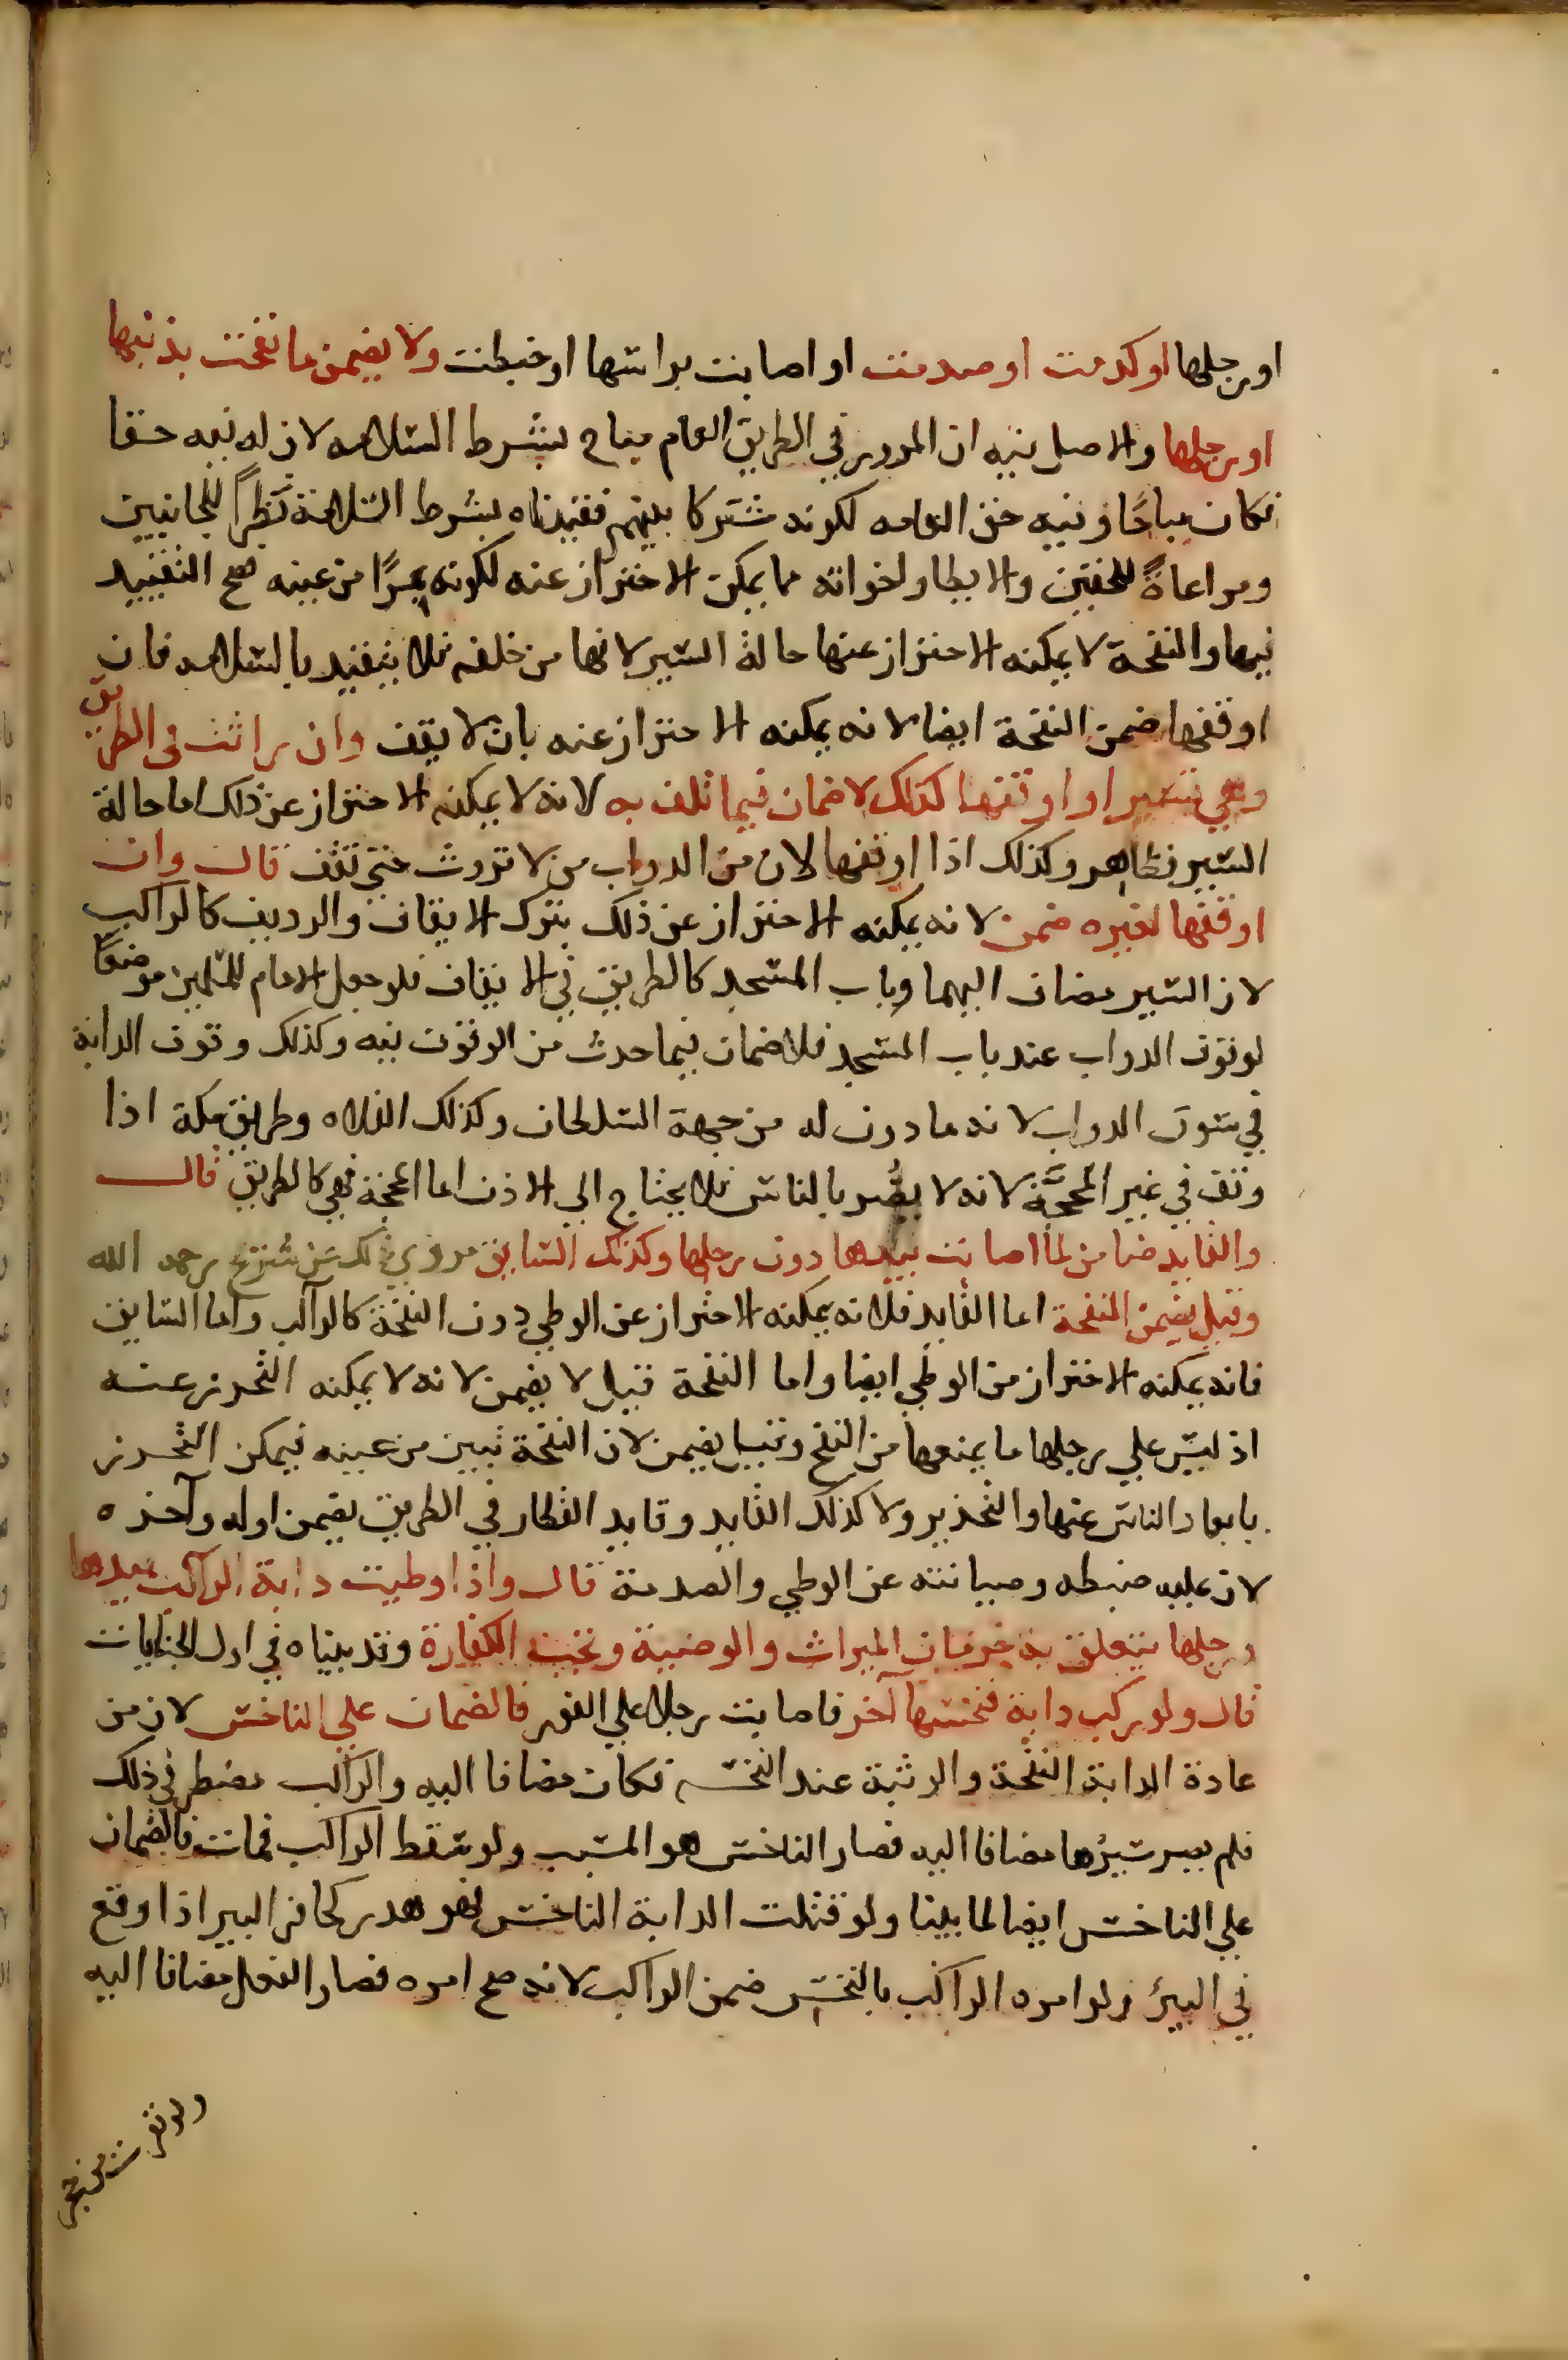 او رجلها او كدمت او صدمت او اصابت براسها او خبطت ولا يضمن ما نفحت بذنبها
او رجلها والاصل فيه ان المرور في الطريق العام مباح بشرط السلامه لان له فيه حقا
فكان مباحًا وفيه حق العامه لكونه مشتركا بينهم فقيدناه بشرط السلامة نظرًا للجانبين
ومراعاةً للحقين والايطا واخواته مما يمكن الاحتراز عنه لكونه بمرًا من عينه فصح التقييد
فيها والنفحة لا يمكنه الاحتراز عنها حالة السير لانها من خلفه فلا يتقيد بالسلامه فان
اوقفها ضمن النفحة ايضا لانه يمكنه الاحتراز عنه بان لا يقف وان راثت في الطريق
وهي تسير او اوقفها لذلك لا ضمان فيما تلف به لانه لا يمكنه الاحتراز عن ذلك اما حالة
السير فظاهر وكذلك اذا اوقفها لان من الدواب من لا تروث حتى تقف قال وان
اوقفها لغيره ضمن لانه يمكنه الاحتراز عن ذلك بترك الايقاف والرديف كالراكب
لان السير مضاف اليهما وباب المسجد كالطريق في الايقاف فلو جعل الامام للمسلمين موضعًا
لوقوف الدواب عند باب المسجد فلا ضمان فيما حدث من الوقوف فيه وكذلك وقوف الدابة
في سوق الدواب لانه ماذون له من جهة السلطان وكذلك الفلاه وطريق مكة اذا
وقف في غير المحجَّة لانه لا يضُر بالناس فلا يحتاج الي الاذن اما المحجة فهي كالطريق قال
والقايد ضامن لما اصابت بيدها دون رجلها وكذلك السايق مروي ذلك عن شريح رحمه الله
وقيل يضمن النفحة اما القايد فلانه يمكنه الاحتراز عن الوطي دون النفحة كالراكب واما السايق
فانه يمكنه الاحتراز من الوطي ايضا واما النفحة قيل لا يضمن لانه لا يمكنه التحرز عنه
اذ ليس علي رجلها ما يمنعها من النفح وقيل يضمن لان النفحة تبين من عينه فيمكن التحرز
بابعاد الناس عنها والتحذير ولا كذلك القايد وقايد القطار في الطريق يضمن اوله وآخره
لان عليه ضبطه وصيانته عن الوطي والصدمة قال واذا وطيت دابة الراكب بيدها
ورجلها يتعلق به حرمان الميراث والوصية وتجب الكفارة وقد بيناه في اول الجنايات
قال ولو ركب دابة فنخسها آخر فاصابت رجلا علي الفور فالضمان علي الناخس لان من
عادة الدابة النفحة والوثبة عند النخسة فكان مضافا اليه والراكب مضطر في ذلك
فلم يصر سيرُها مضافا اليه فصار الناخس هو المسبب ولو سقط الراكب فمات فالضمان
علي الناخس ايضا لما بينا ولو قتلت الدابة الناخس فهو هدر كحافر البير اذا وقع
في البير ولو امره الراكب بالنخس ضمن الراكب لانه صح امره فصار الفعل مضافا اليه
ولو نفرت من حجر